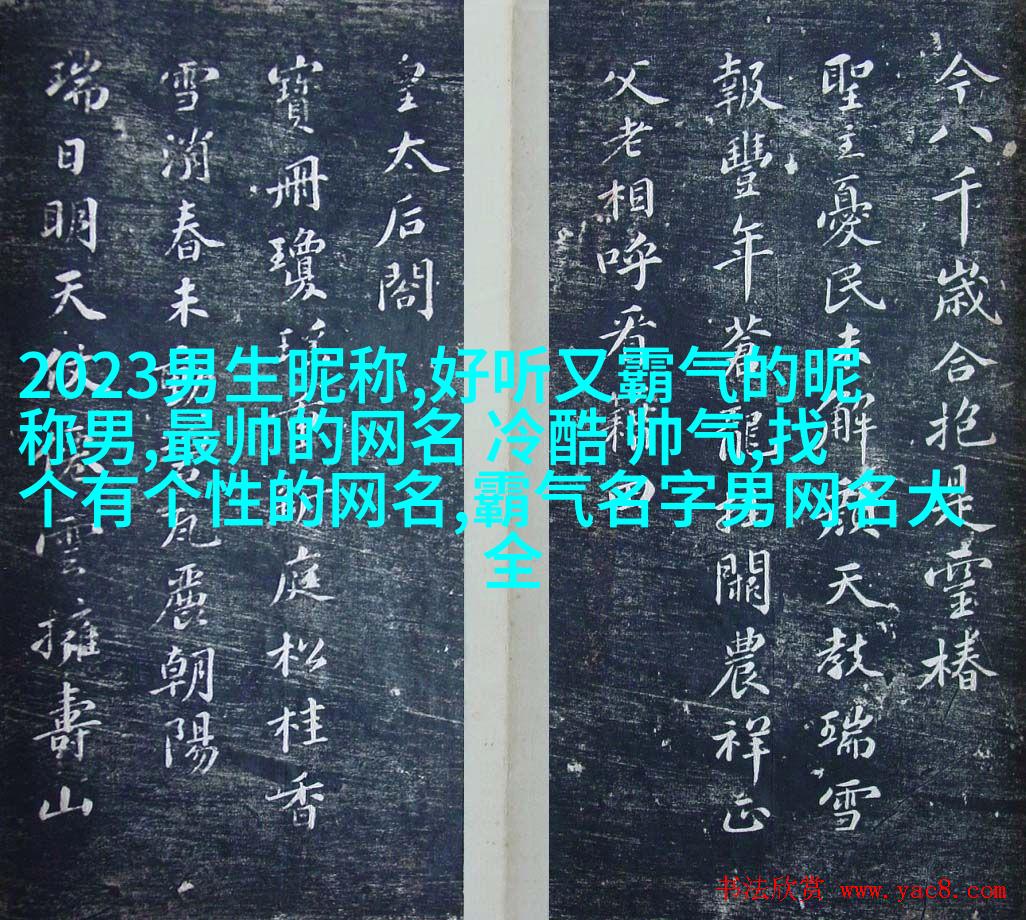 2023男生昵称,好听又霸气的昵
称男,最帅的网名 冷酷 帅气,找
个有个性的网名,霸气名字男网名大
全
今八千歲合抱是靈椿
聖主憂民未解顏天教瑞雪
報豐年蒼龍挂闕農祥正
父老相呼看籍田
皇太后閣
寶冊瓊瑤庭松桂香
雪消春未瓦麗朝陽
瑞日明天仗雲擁壽山
书法欣赏 www.yac8.com